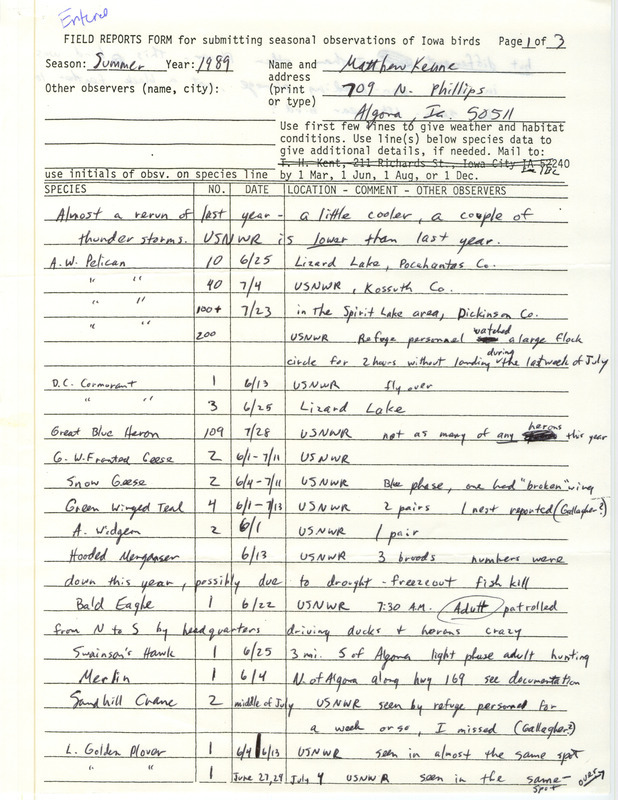 Entered
FIELD REPORTS FORM for submitting seasonal observations of Iowa birds Page 1 of 3
Season: Summer Year: 1989 Name and Matthew Kenne
address
Other observers (name, city): (print 709 N. Phillips
or type)
Algona, Ia. 50511
Use first few lines to give weather and habitat
conditions. Use line(s) below species data to
give additional details, if needed. Mail to:
T. H. Kent, 211 Richards St., Iowa City IA 52240
use initials of obsv. on species line by 1 Mar, 1 Jun, 1 Aug, or 1 Dec.
SPECIES NO. DATE LOCATION - COMMENT - OTHER OBSERVERS
Almost a rerun of last year - a little cooler, a couple of
thunder storms. USNWR is lower than last year.
A.W. Pelican 10 6/25 Lizard Lake, Pocahontas Co.
" " 40 7/4 USNWR, Kossuth Co.
" " 100+ 7/23 in The Spirit Lake area, Dickinson Co.
" " 200 USNWR Refuge personnel watched a large flock
circle for 2 hours without landing during the last week of July
D.C. Cormorant 1 6/13 USNWR fly over
" " 3 6/25 Lizard Lake
Great Blue Heron 109 7/28 USNWR not as many of any herons this year
G. W. Fronted Geese 2 6/1-7/11 USNWR
Snow Geese 2 6/4-7/11 USNWR Blue phase, one had "broken" wing
Green Winged Teal 4 6/1-7/13 USNWR 2 pairs 1 nest reported (Gallagher?)
A. Widgeon 2 6/1 USNWR 1 pair
Hooded Merganser 6/13 USNWR 3 broods numbers were
down this year, possibly due to drought - freezeout fish kill
Bald Eagle 1 6/22 USNWR 7:30 A.M. Adult patrolled
from N to S by headquarters driving ducks + herons crazy
Swainson's Hawk 1 6/25 3 mi. S of Algona light phase adult hunting
Merlin 1 6/4 N. of Algona along hwy 169 see documentation
Sandhill Crane 2 middle of July USNWR seen by refuge personnel for
a week or so, I missed (Gallagher?)
L. Golden Plover 1 6/4 6/13 USNWR seen in almost the same spot
" " 1 June 27,29 July 4 USNWR seen in the same spot over